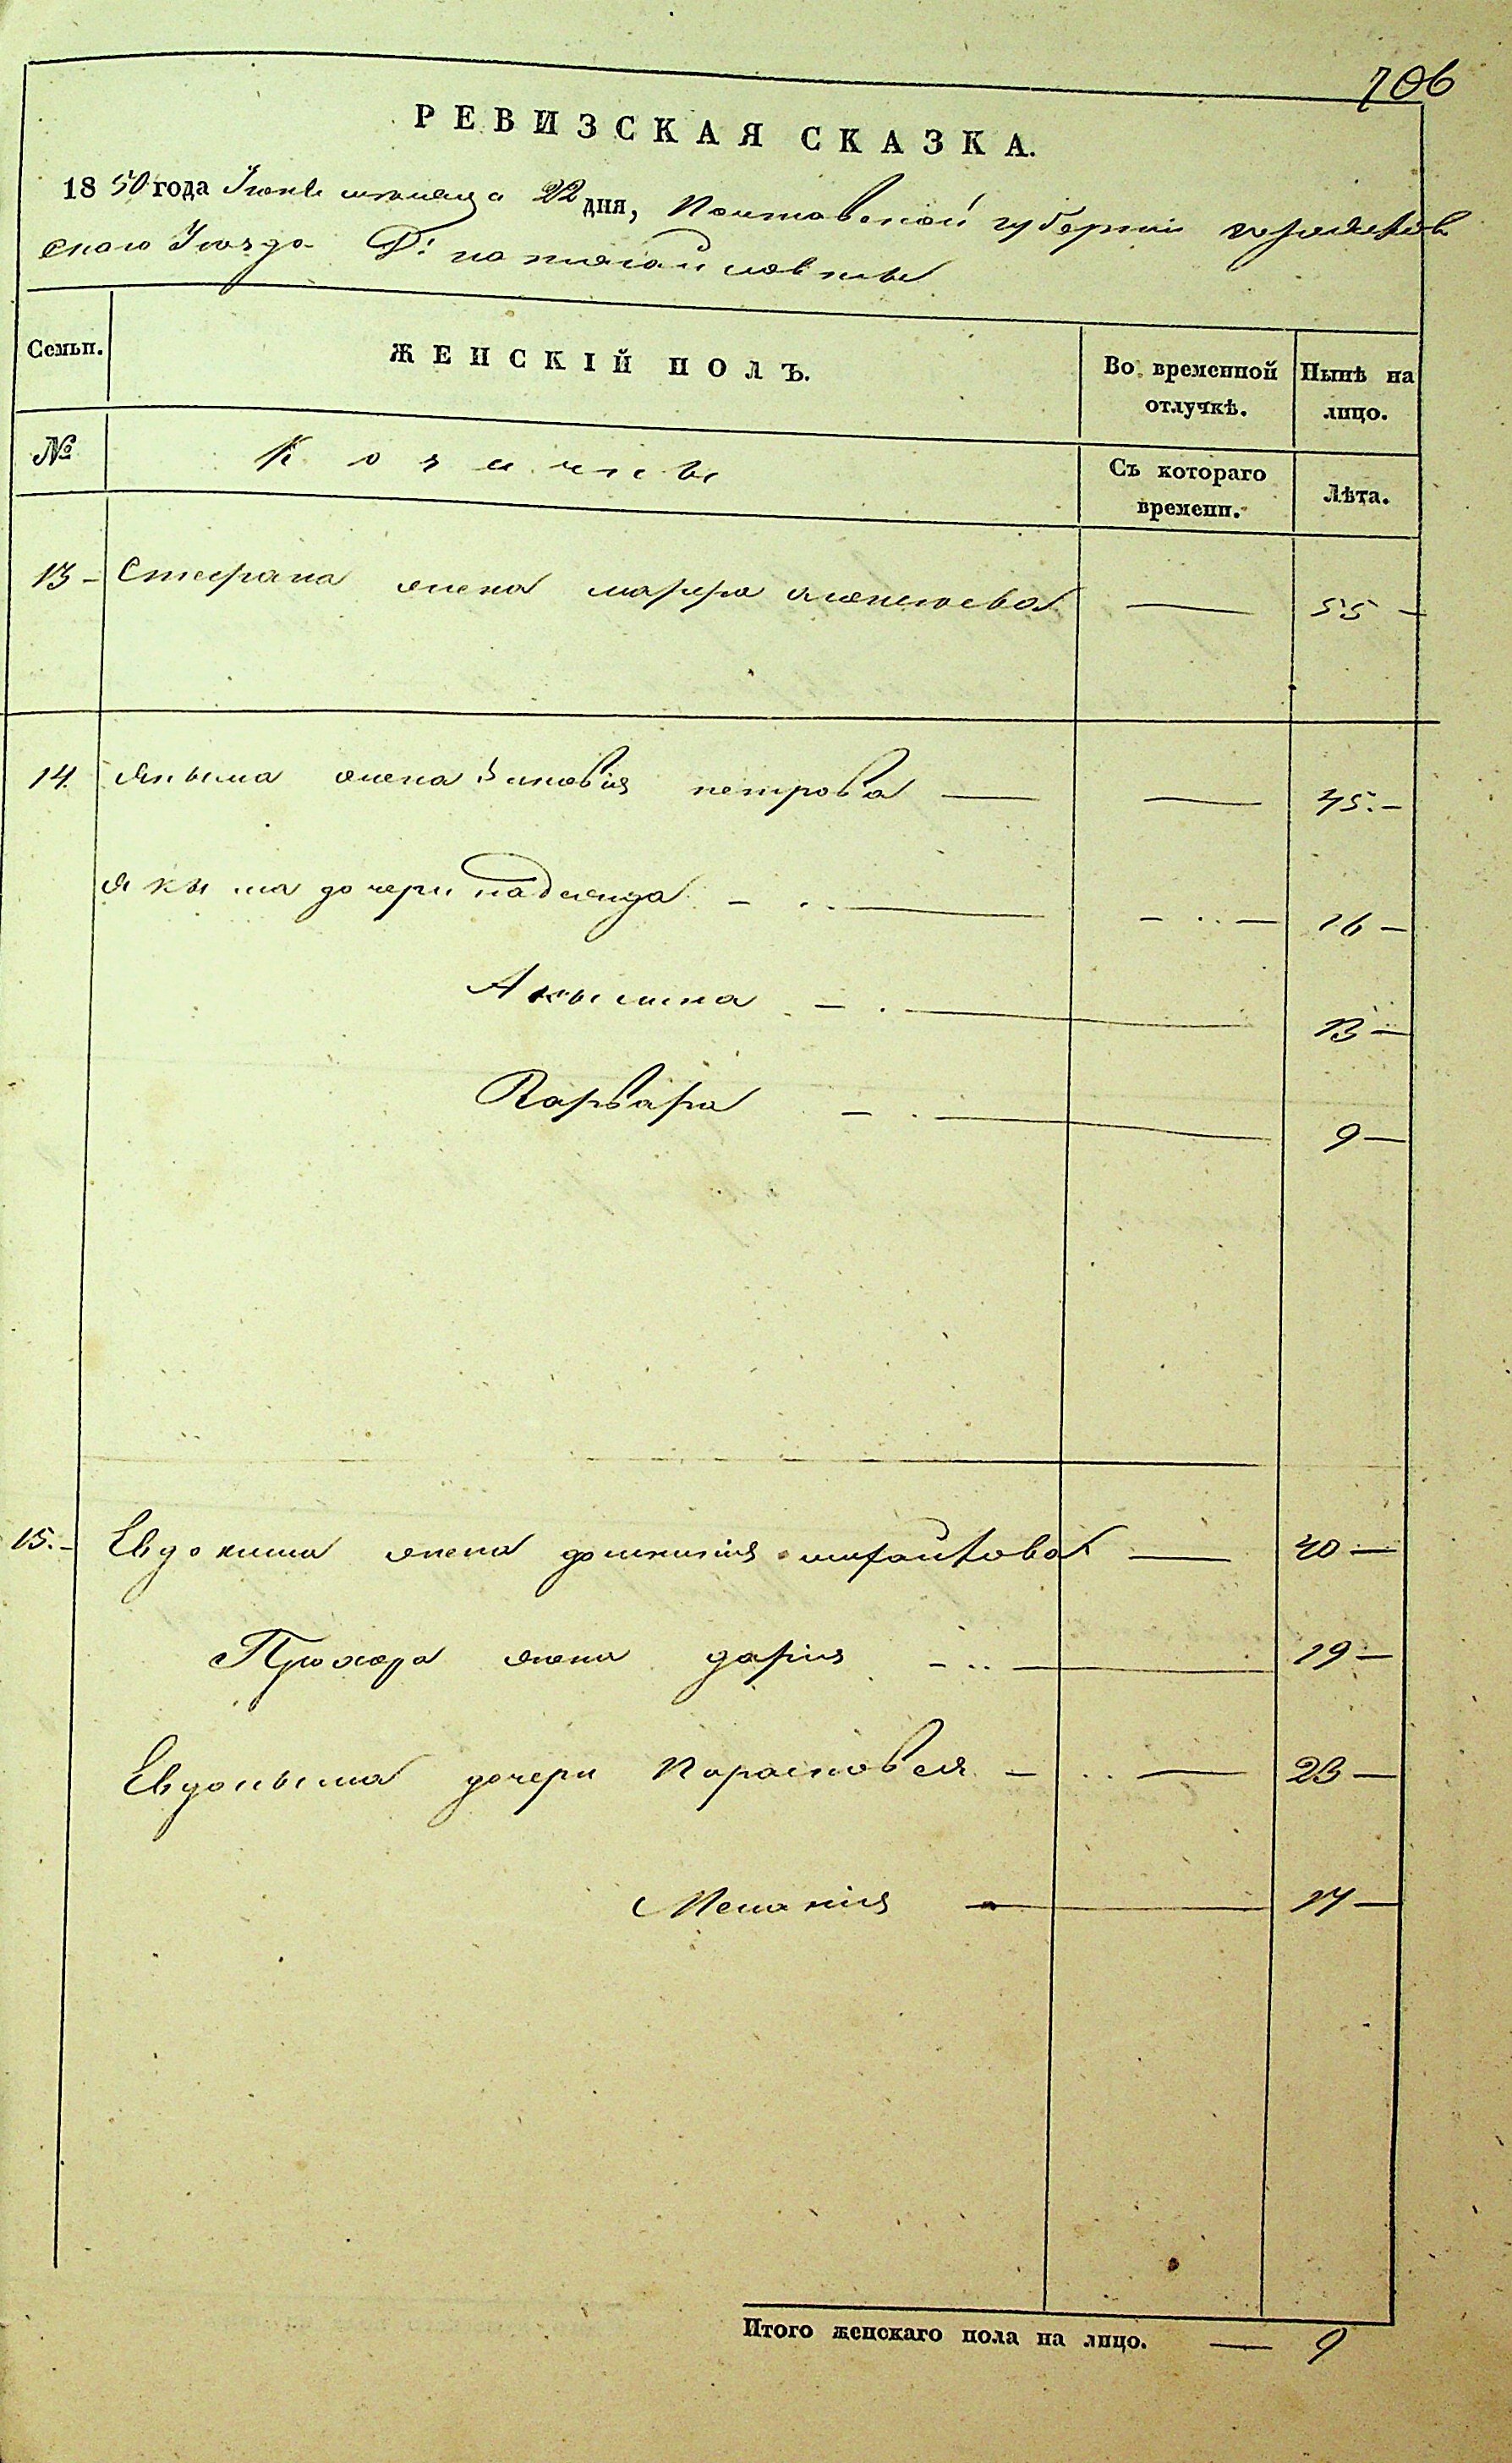 706
РЕВИЗСКАЯ СКАЗКА.
1850 года Июня месяца 22 дня, Полтавской губернии
ского Уезда
Семьи. ЖЕНСКІЙ ПОЛЪ. Во временной отлучкѣ. Нынѣ на лицо.
№ Козачки Съ котораго времени. Лѣта.
13 - Стефана жена марфа — 55 -
14. Якыма жена Зиновія петрова — — 45. -
Якыма дочери надежда - — 16 -
Акылина - — 13 -
Варвара - — 9 -
15. - Евдокима жена домникія — 40 -
Прохора жена дарія - — 19 -
Евдокыма дочери Парасковея - — 23 -
Меланія — 17 -
Итого женскаго пола на лицо. — 9